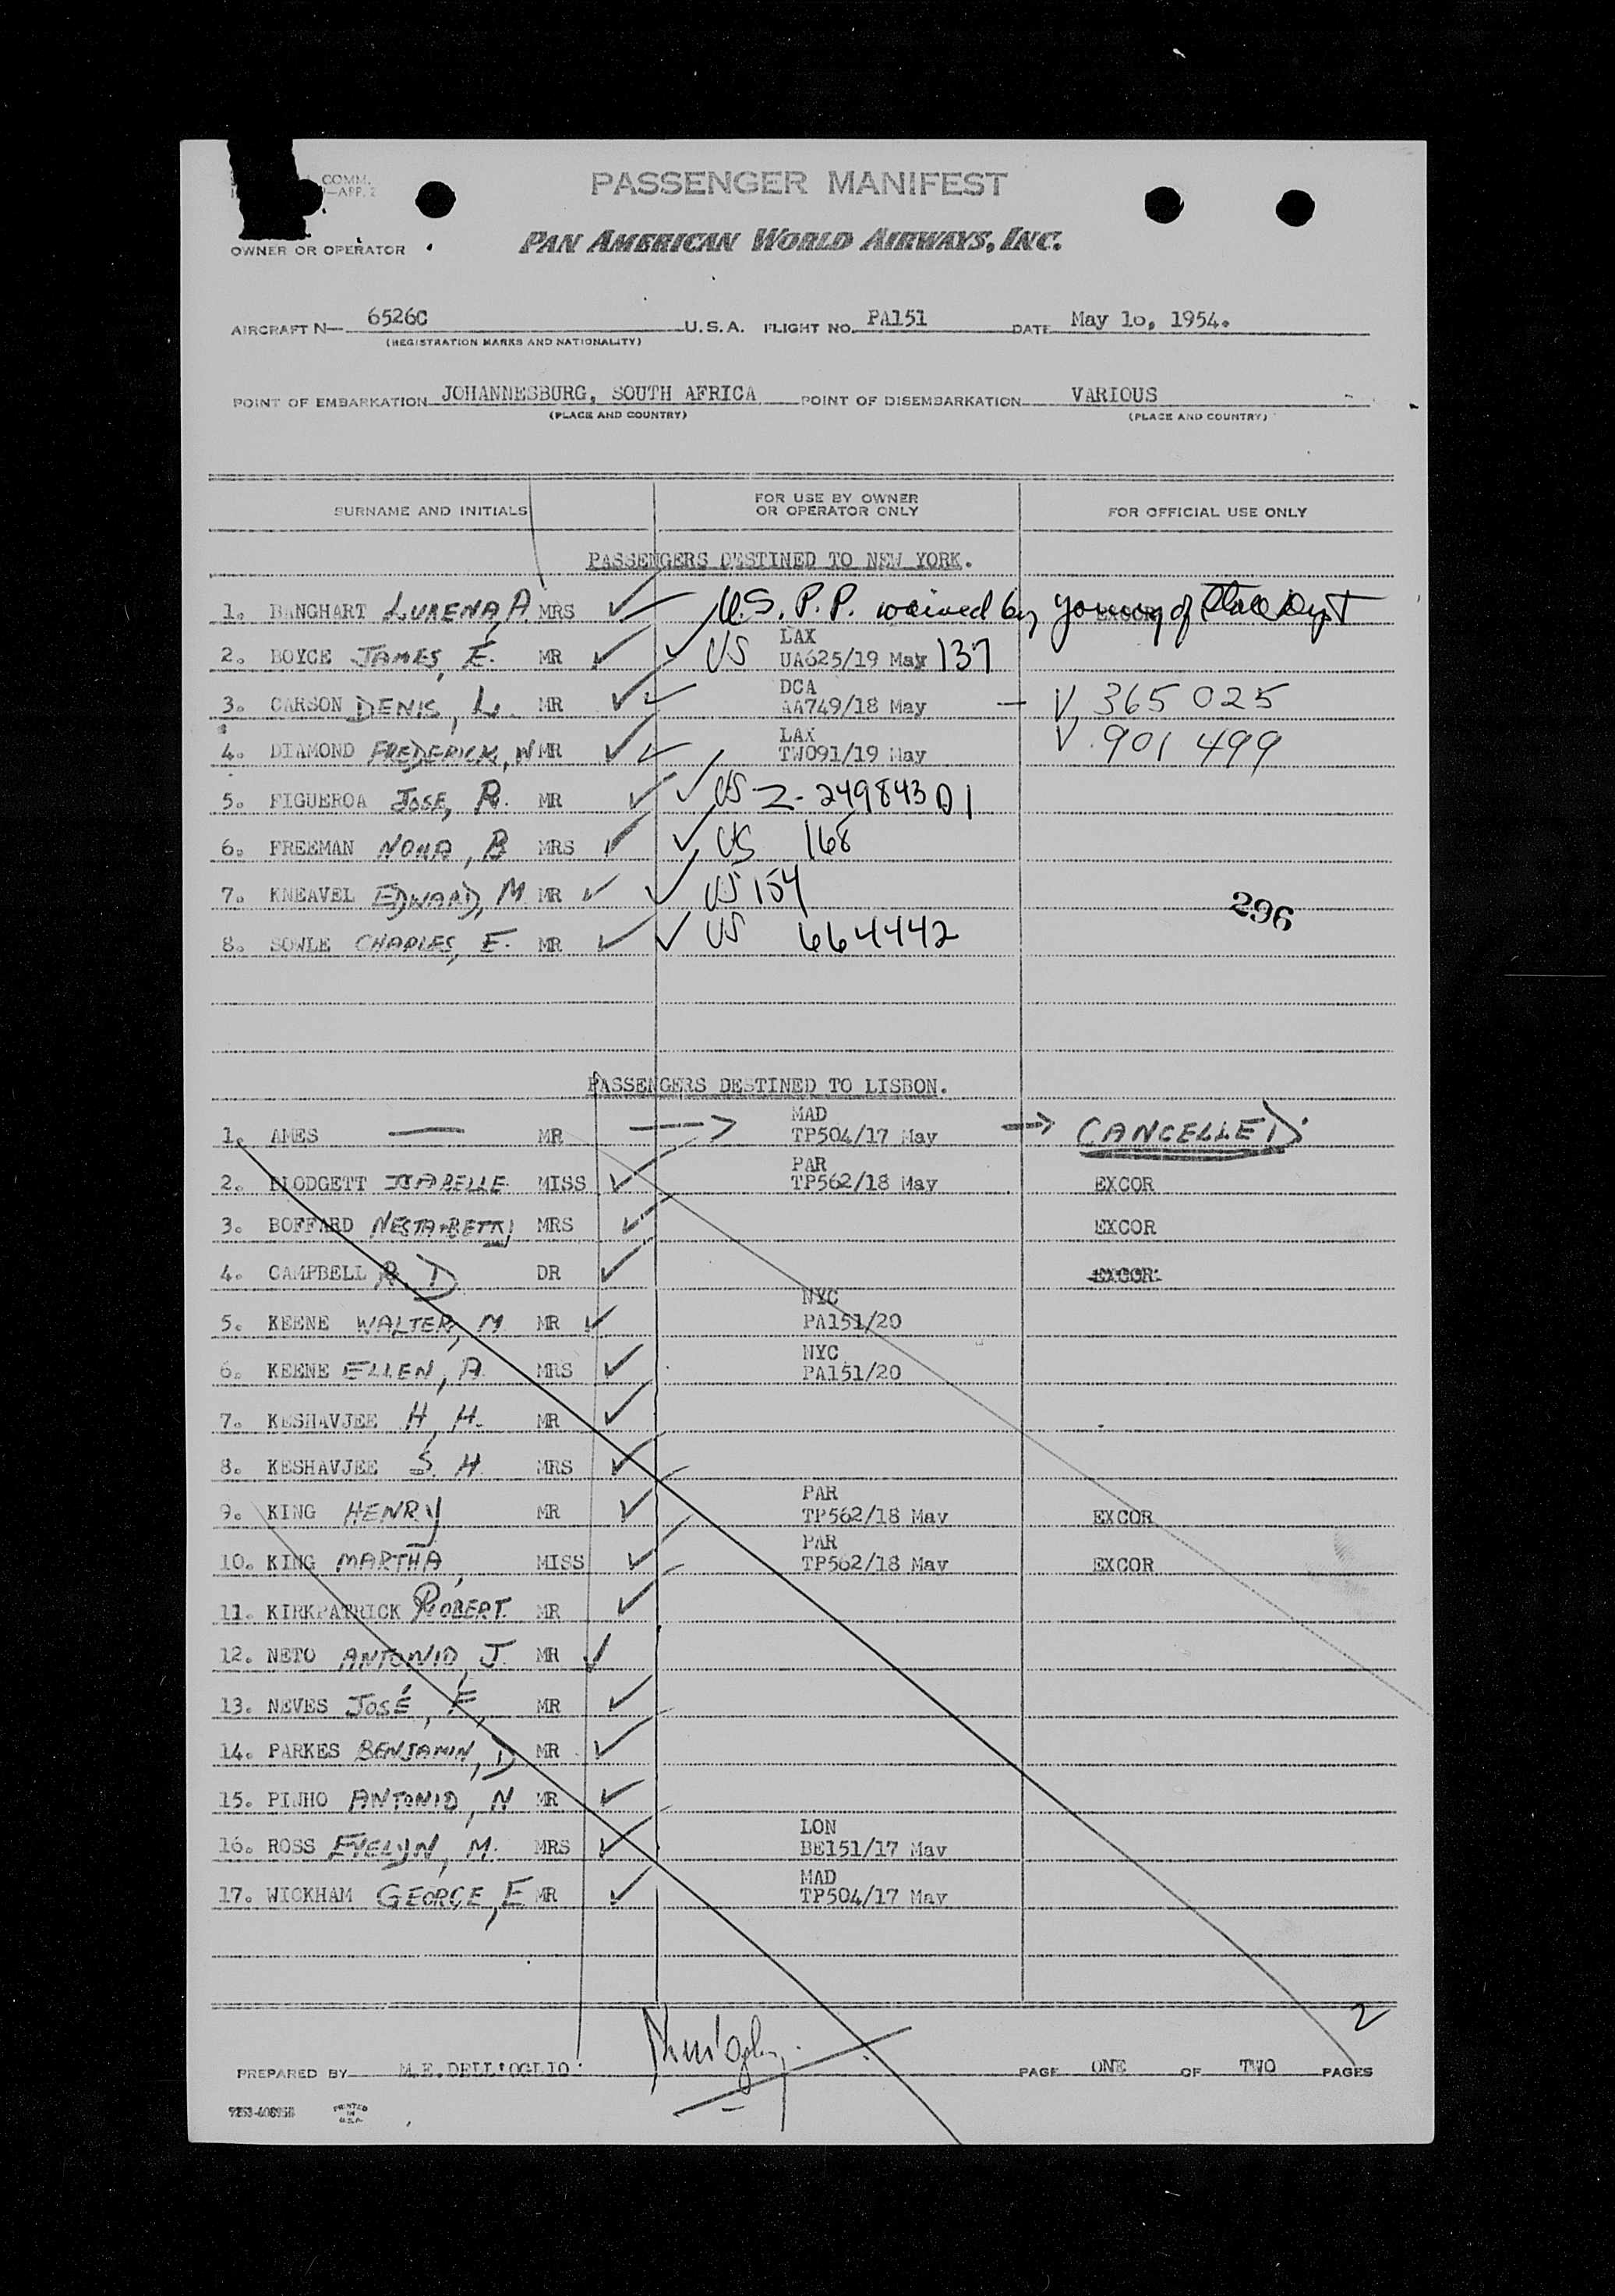 COMM.
—APP. 2
PASSENGER MANIFEST
OWNER OR OPERATOR
PAN AMERICAN WORLD AIRWAYS, INC.
AIRCRAFT N— 6526C U.S.A. FLIGHT NO. PA151 DATE May 16, 1954.
(REGISTRATION MARKS AND NATIONALITY)
POINT OF EMBARKATION JOHANNESBURG, SOUTH AFRICA POINT OF DISEMBARKATION VARIOUS
(PLACE AND COUNTRY) (PLACE AND COUNTRY)
SURNAME AND INITIALS FOR USE BY OWNER OR OPERATOR ONLY FOR OFFICIAL USE ONLY
PASSENGERS DESTINED TO NEW YORK.
1. BANGHART LURENA, A. MRS U.S. P.P. waived by Young of State Dept EXCOR
LAX
2. BOYCE JAMES, E. MR US UA625/19 May 137
DCA
3. CARSON DENIS, L. MR AA749/18 May — V. 365 025
LAX
4. DIAMOND FREDERICK, W MR TW091/19 May V. 901 499
5. FIGUEROA JOSE, R. MR US Z-249843 D1
6. FREEMAN NONA, B MRS US 168
7. KNEAVEL EDWARD, M. MR US 154
296
8. SOWLE CHARLES, E. MR US 664442
PASSENGERS DESTINED TO LISBON.
MAD
1. AMES — MR TP504/17 May CANCELLED.
PAR
2. BLODGETT ISABELLE MISS TP562/18 May EXCOR
3. BOFFARD NESTA-BETTY MRS EXCOR
4. CAMPBELL R. D DR EXCOR
NYC
5. KEENE WALTER, M. MR PA151/20
NYC
6. KEENE ELLEN, A. MRS PA151/20
7. KESHAVJEE H, H. MR
8. KESHAVJEE S. H. MRS
PAR
9. KING HENRY MR TP562/18 May EXCOR
PAR
10. KING MARTHA, MISS TP562/18 May EXCOR
11. KIRKPATRICK ROBERT. MR
12. NETO ANTONIO, J. MR
13. NEVES JOSÉ, F, MR
14. PARKES BENJAMIN, D MR
15. PINHO ANTONIO, N MR
LON
16. ROSS EVELYN, M. MRS BE151/17 May
MAD
17. WICKHAM GEORGE, E MR TP504/17 May
2
PREPARED BY M.E.DELL'OGLIO. PAGE ONE OF TWO PAGES
PRINTED
IN
U.S.A.